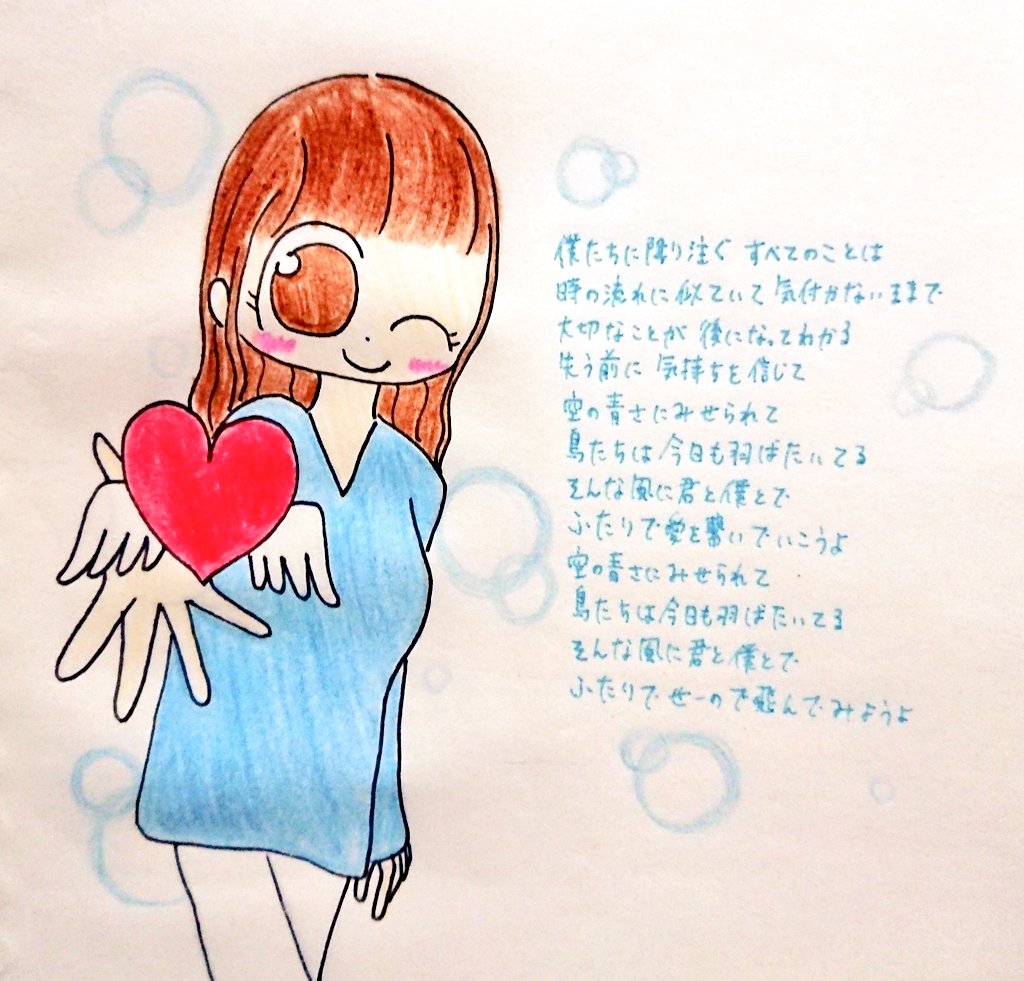 僕たちに降り注ぐ すべてのことは
時の流れに似ていて 気付かないままで
大切なことが 後になってわかる
失う前に 気持ちを信じて
空の青さにみせられて
鳥たちは今日も羽ばたいてる
そんな風に君と僕とで
ふたりで愛を繋いでいこうよ
空の青さにみせられて
鳥たちは今日も羽ばたいてる
そんな風に君と僕とで
ふたりでせーので飛んでみようよ